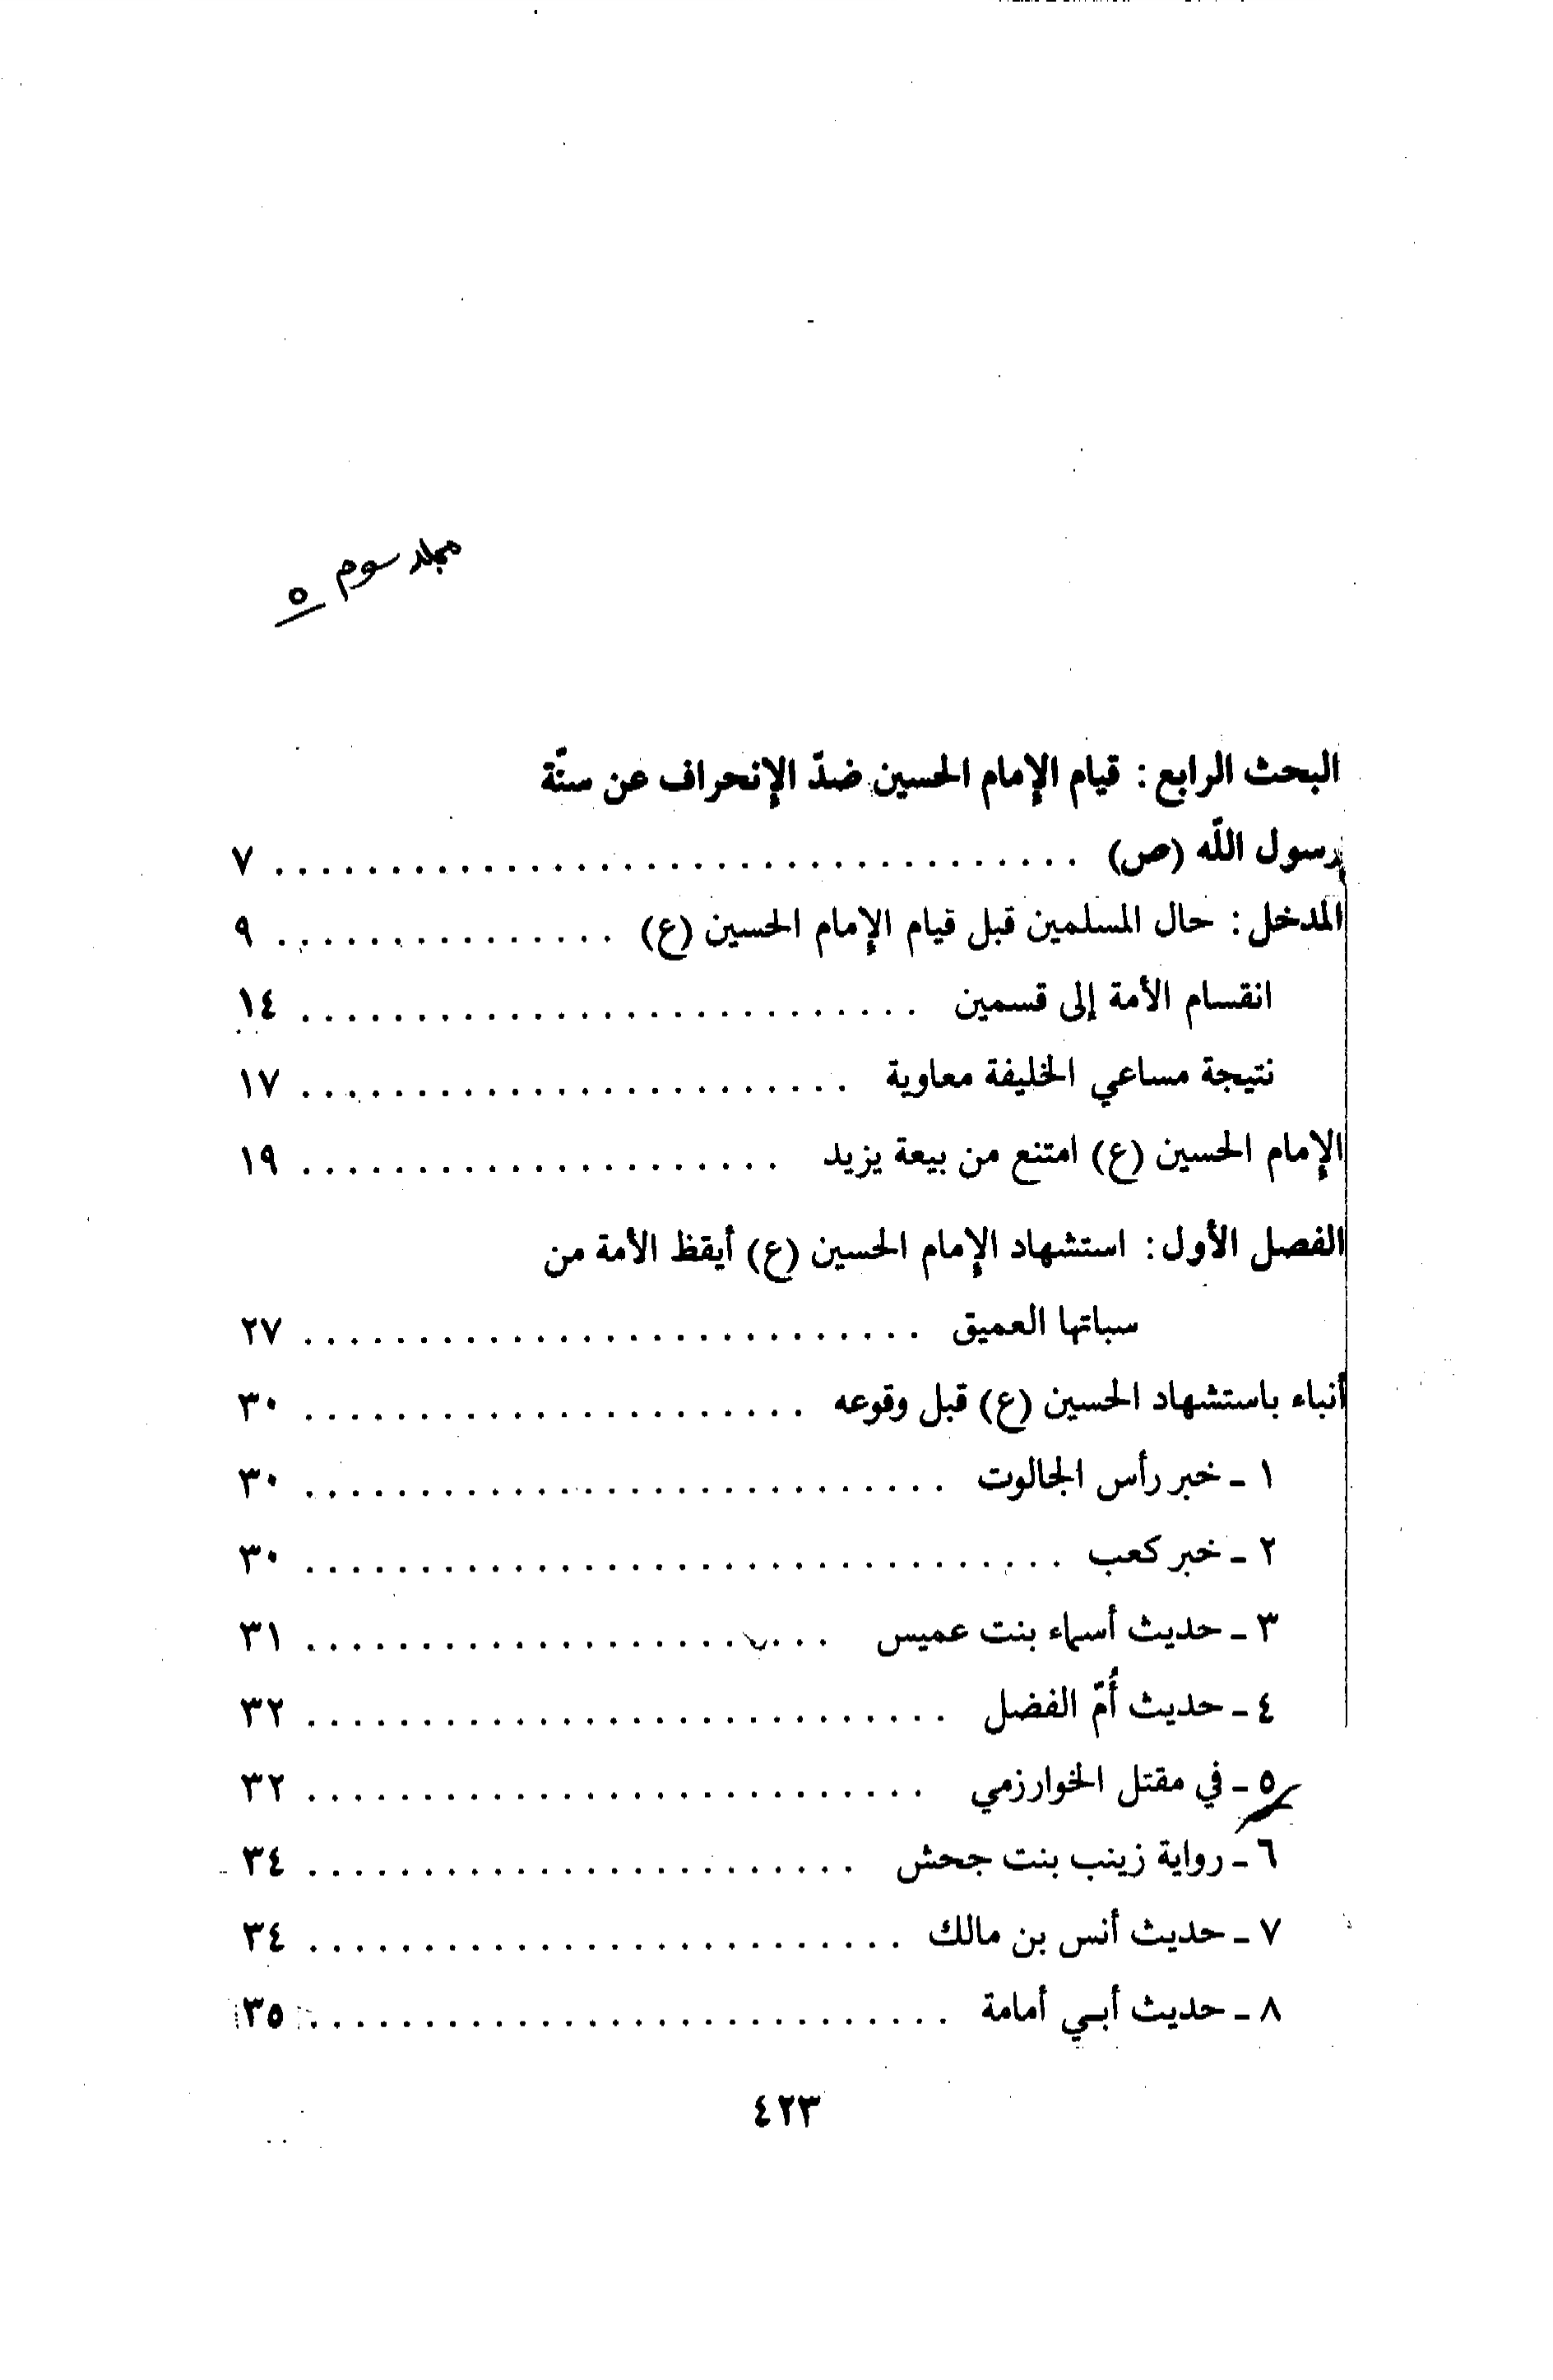 مجلد سوم ٥
البحث الرابع : قيام الإمام الحسين ضدّ الإنحراف عن سنّة
رسول اللّه (ص) . . . . . . . . . . . . . . . . . . . . ٧
المدخل : حال المسلمين قبل قيام الإمام الحسين (ع) . . . . . . . . . . ٩
انقسام الأمة إلى قسمين . . . . . . . . . . . . . . . . . . . . ١٤
نتيجة مساعي الخليفة معاوية . . . . . . . . . . . . . . . . . . . . ١٧
الإمام الحسين (ع) امتنع من بيعة يزيد . . . . . . . . . . . . . . . . . . . . ١٩
الفصل الأول : استشهاد الإمام الحسين (ع) أيقظ الأمة من
سباتها العميق . . . . . . . . . . . . . . . . . . . . ٢٧
أنباء باستشهاد الحسين (ع) قبل وقوعه . . . . . . . . . . . . . . . . . . . . ٣٠
١ ـ خبر رأس الجالوت . . . . . . . . . . . . . . . . . . . . ٣٠
٢ ـ خبر كعب . . . . . . . . . . . . . . . . . . . . ٣٠
٣ ـ حديث أسماء بنت عميس . . . . . . . . . . . . . . . . . . . . ٣١
٤ ـ حديث أُمّ الفضل . . . . . . . . . . . . . . . . . . . . ٣٢
٥ ـ في مقتل الخوارزمي . . . . . . . . . . . . . . . . . . . . ٣٢
٦ ـ رواية زينب بنت جحش . . . . . . . . . . . . . . . . . . . . ٣٤
٧ ـ حديث أنس بن مالك . . . . . . . . . . . . . . . . . . . . ٣٤
٨ ـ حديث أبي أمامة . . . . . . . . . . . . . . . . . . . . ٣٥
٤٢٣